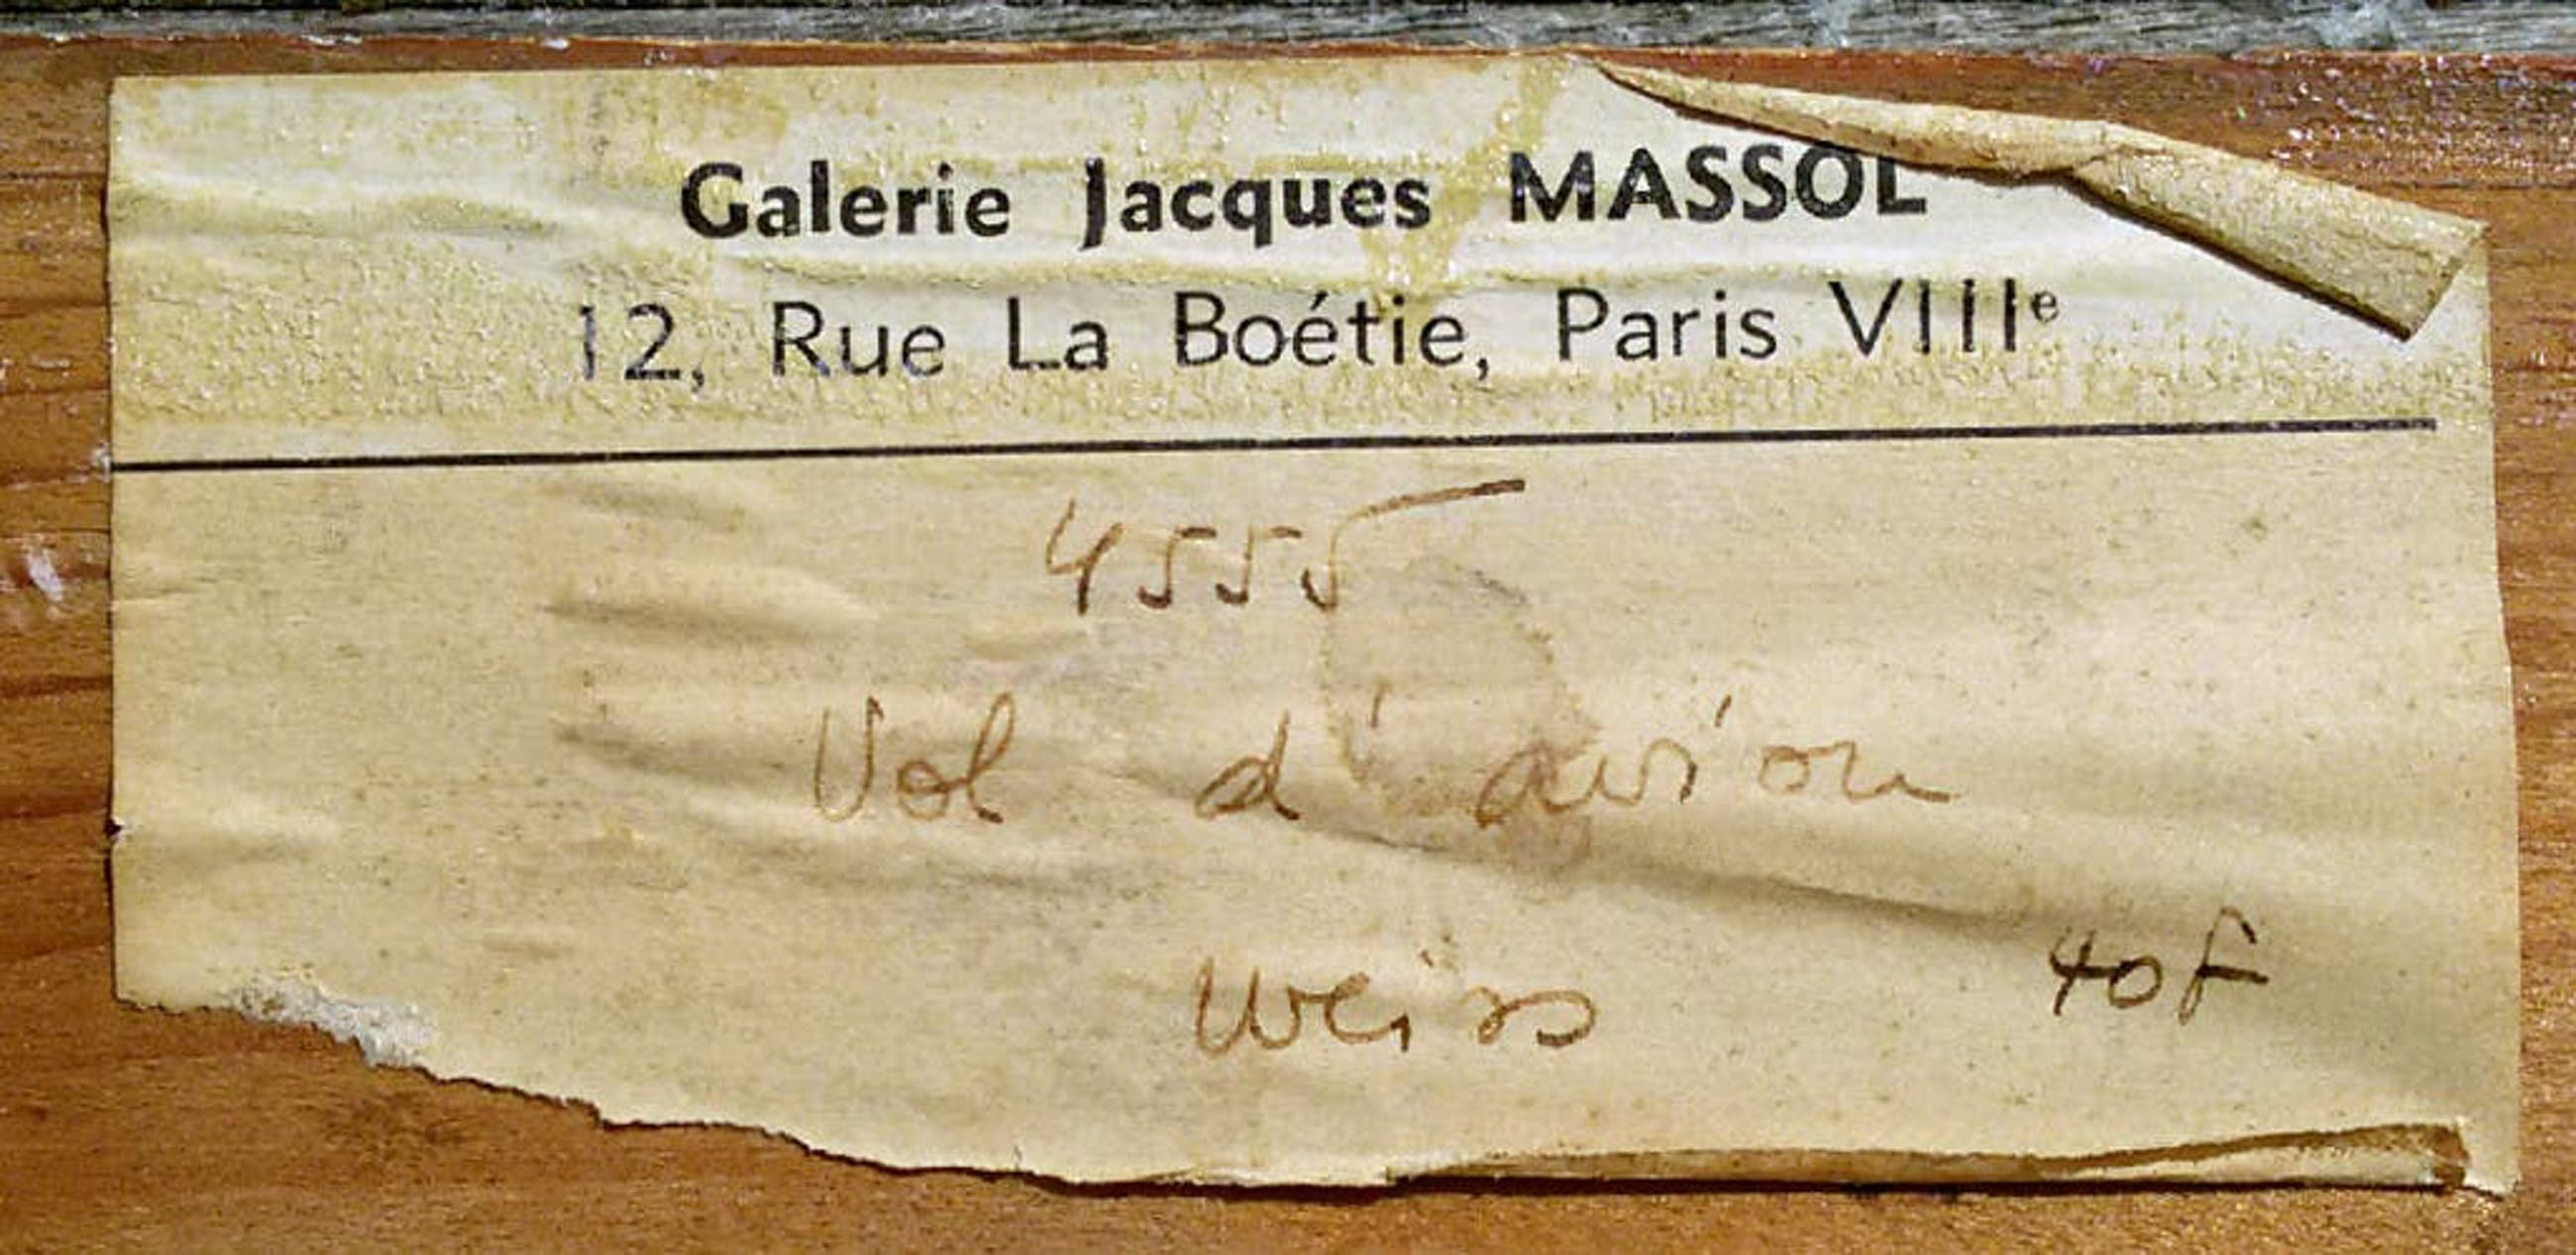 Galerie Jacques MASSOL
12, Rue La Boétie, Paris VIIIe
4555
Vol d'avion
Weiss
40F